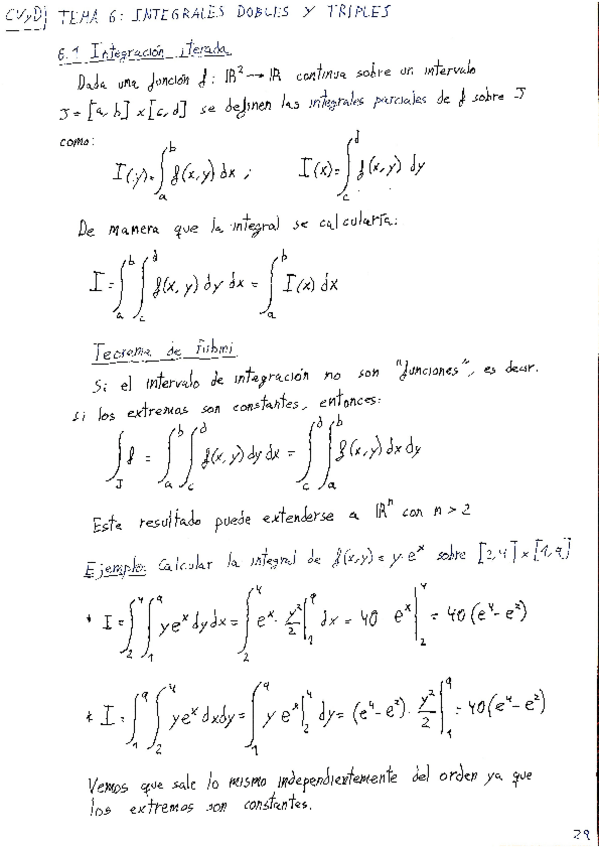 CVyD) TEMA 6: INTEGRALES DOBLES Y TRIPLES
6.1 Integración iterada
Dada una función f: ℝ² → ℝ continua sobre un intervalo
J = [a, b] × [c, d] se definen las integrales parciales de f sobre J
como:
I(y) = ∫_a^b f(x, y) dx ; I(x) = ∫_c^d f(x, y) dy
De manera que la integral se calcularía:
I = ∫_a^b ∫_c^d f(x, y) dy dx = ∫_a^b I(x) dx
Teorema de Fubini
Si el intervalo de integración no son "funciones", es decir,
si los extremos son constantes, entonces:
∫_J f = ∫_a^b ∫_c^d f(x, y) dy dx = ∫_c^d ∫_a^b f(x, y) dx dy
Este resultado puede extenderse a ℝⁿ con n > 2
Ejemplo: Calcular la integral de f(x,y) = y·eˣ sobre [2,4] × [1,9]
* I = ∫_2^4 ∫_1^9 y eˣ dy dx = ∫_2^4 eˣ · y²/2 |_1^9 dx = 40 eˣ |_2^4 = 40(e⁴ - e²)
* I = ∫_1^9 ∫_2^4 y eˣ dx dy = ∫_1^9 y eˣ |_2^4 dy = (e⁴ - e²) · y²/2 |_1^9 = 40(e⁴ - e²)
Vemos que sale lo mismo independientemente del orden ya que
los extremos son constantes.
29